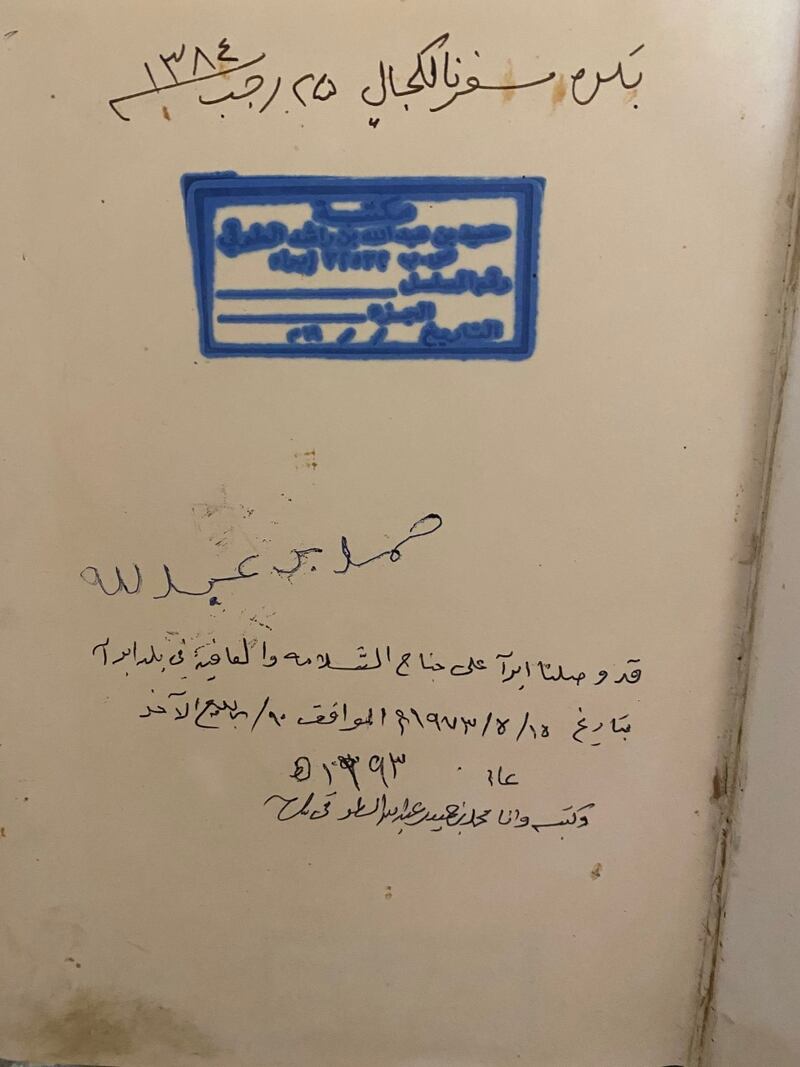 بكره سفرنا لكجالي ٢٥ رجب ١٣٨٤
مكتبة
حميد بن عبدالله بن راشد الطوقي
ص.ب
رقم المسلسل
الجزء
التاريخ / /
حمد بن عبدلله
قد وصلنا ابرآ على جناح السلامه والعافية في بلد ابرآ
بتاريخ ١٥/٥/١٩٧٣م الموافق ربيع الآخر
عام ١٣٩٣ه
وكتبه وانا محمد بن حميد بن عبدالله الطوقي